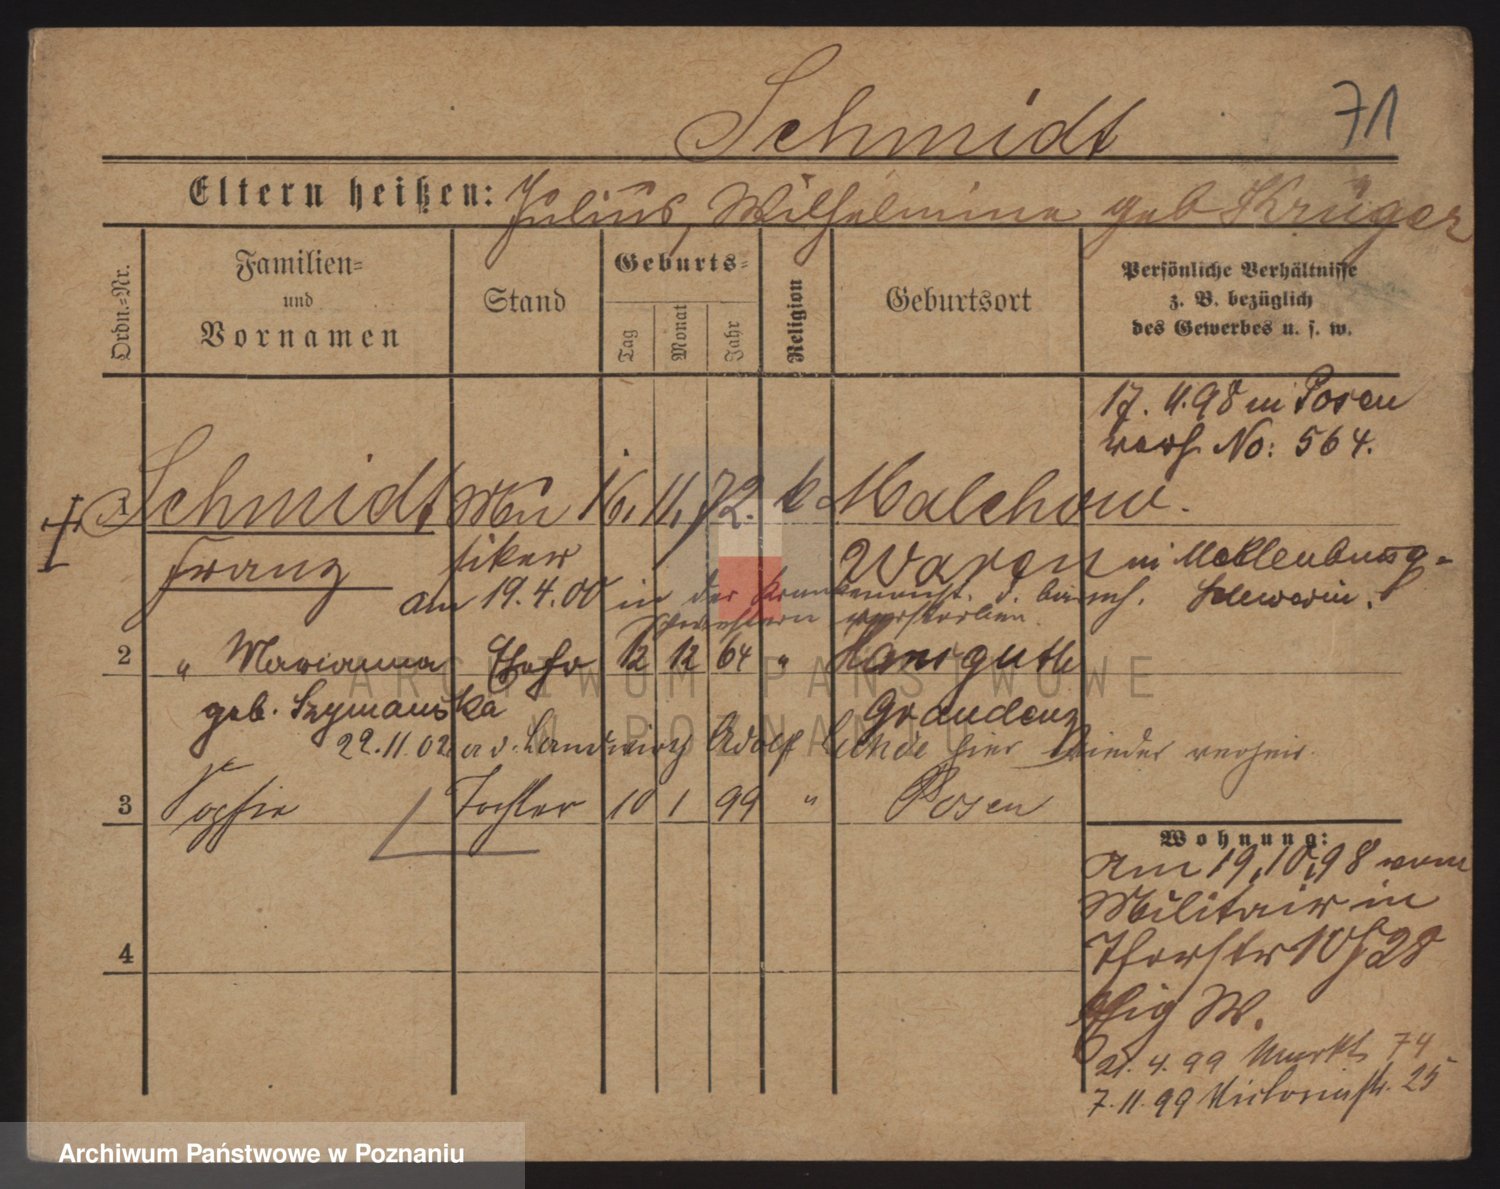 Schmidt
71
Eltern heißen: Julius, Wilhelmine geb Krüger
Ordn.-Nr.
Familien-
und
Vornamen
Stand
Geburts-
Tag
Monat
Jahr
Religion
Geburtsort
Persönliche Verhältnisse
z. B. bezüglich
des Gewerbes u. s. w.
17. 11. 98 in Posen
verh. No: 564.
1 Schmidt Mu 16. 11. 72. k Malchow.
Franz siker Waren in Mecklenburg-
am 19. 4. 00 in der Krankenanst. d. barmh. Schwerin.
Schwestern verstorben.
2 " Marianna Ehefr 12 12 64 "
geb. Szymanska Graudenz
22.11.02 a d. Landwirth Adolf hier wieder verheir.
3 Sophie Tochter 10 1 99 " Posen
4
Wohnung:
Am 19.10.98 vom
Militair in
Thorstr 10
W.
21. 4. 99 Markt 74
7. 11. 99 Victoriastr. 25
ARCHIWUM PAŃSTWOWE
W POZNANIU
Archiwum Państwowe w Poznaniu